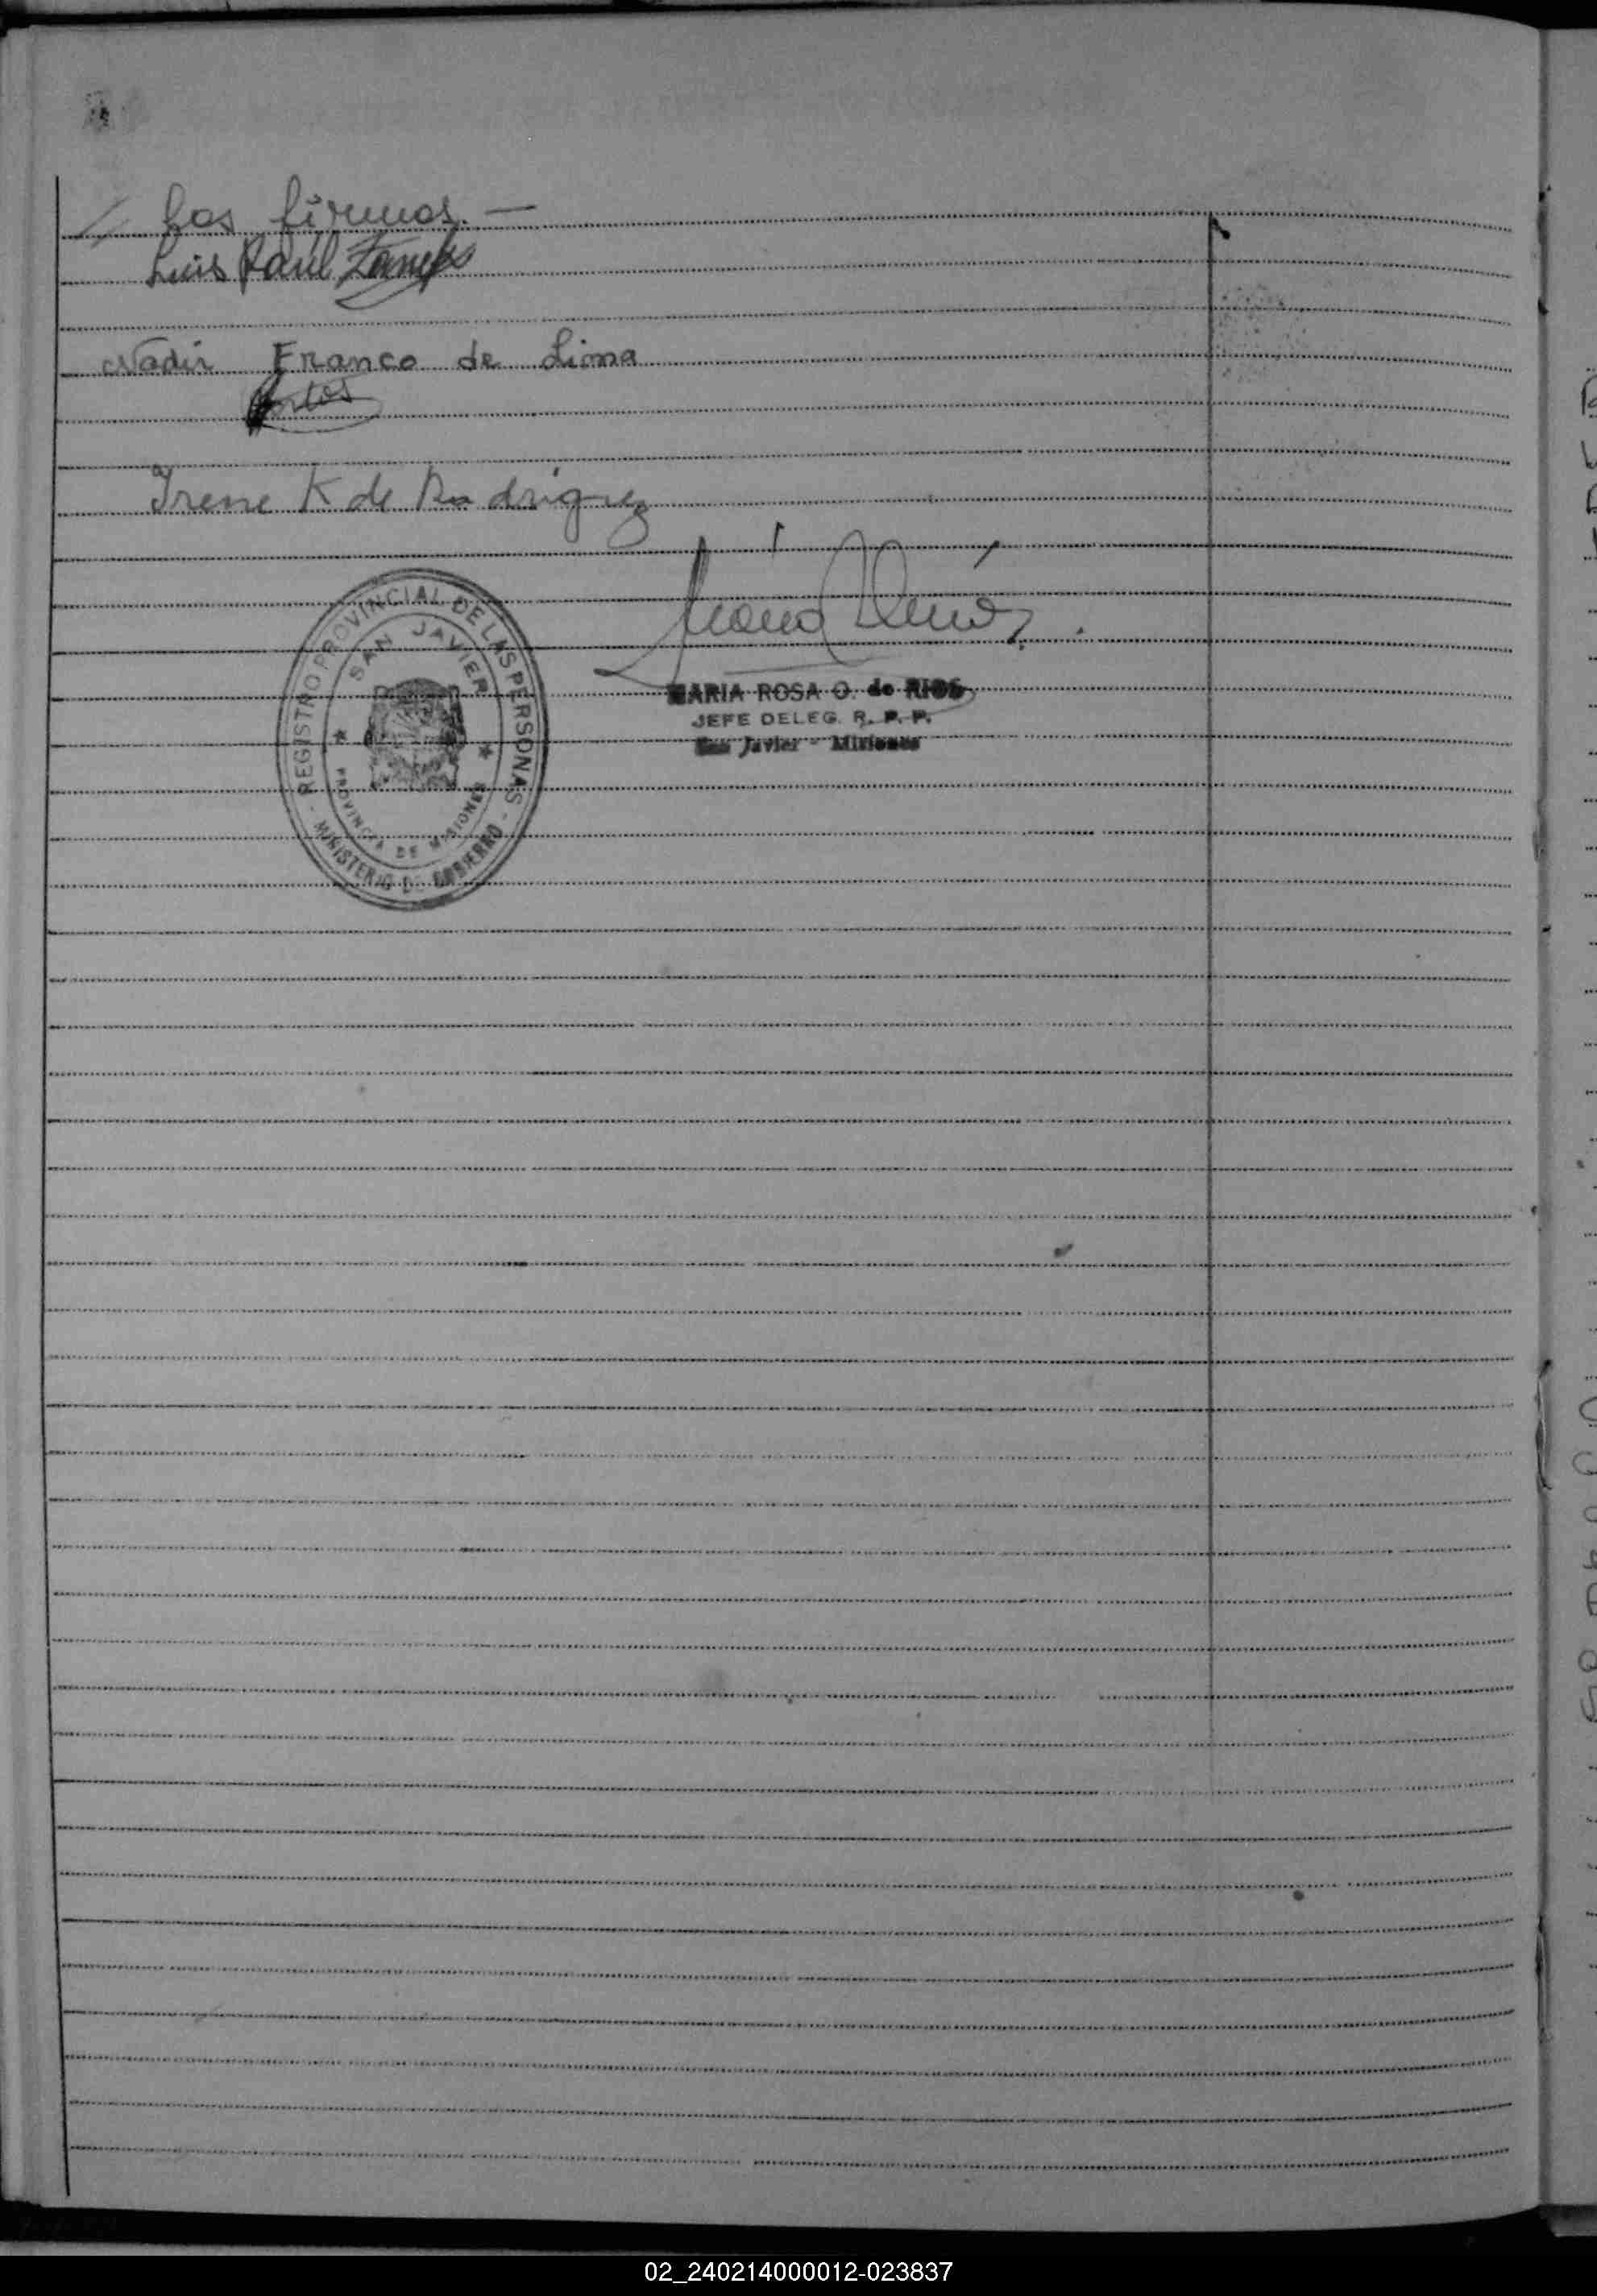 / Las firmas. —
Luis Raúl
Nadir Franco de Lima
Irene K de Rodriguez
REGISTRO PROVINCIAL DE LAS PERSONAS
SAN JAVIER
PROVINCIA DE MISIONES
- MINISTERIO DE GOBIERNO -
MARIA ROSA O. de RIOS
JEFE DELEG. R. P. P.
San Javier - Misiones
02_240214000012-023837